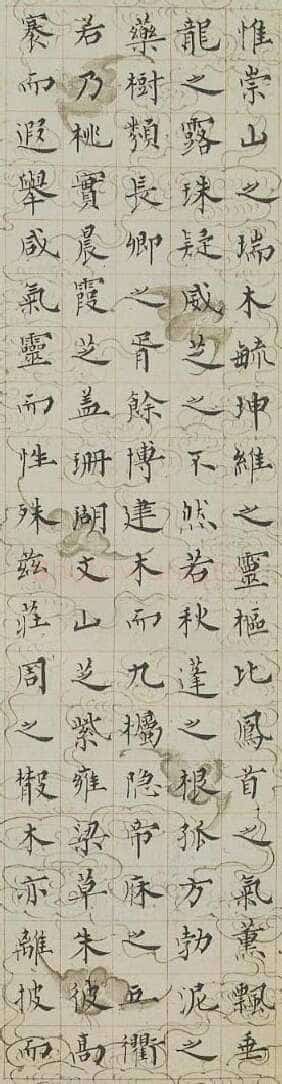 惟崇山之瑞木毓坤維之靈樞比鳳首之氣薰飄垂
龍之露珠疑威芝之不然若秋蓬之根孤方勃泥之
藥樹類長卿之胥餘博建木而九欘隐帝庥之五衢
若乃桃實晨霞芝盖珊瑚文山芝紫雍梁草朱彼高
褰而遐舉咸氣靈而性殊兹莊周之散木亦離披而